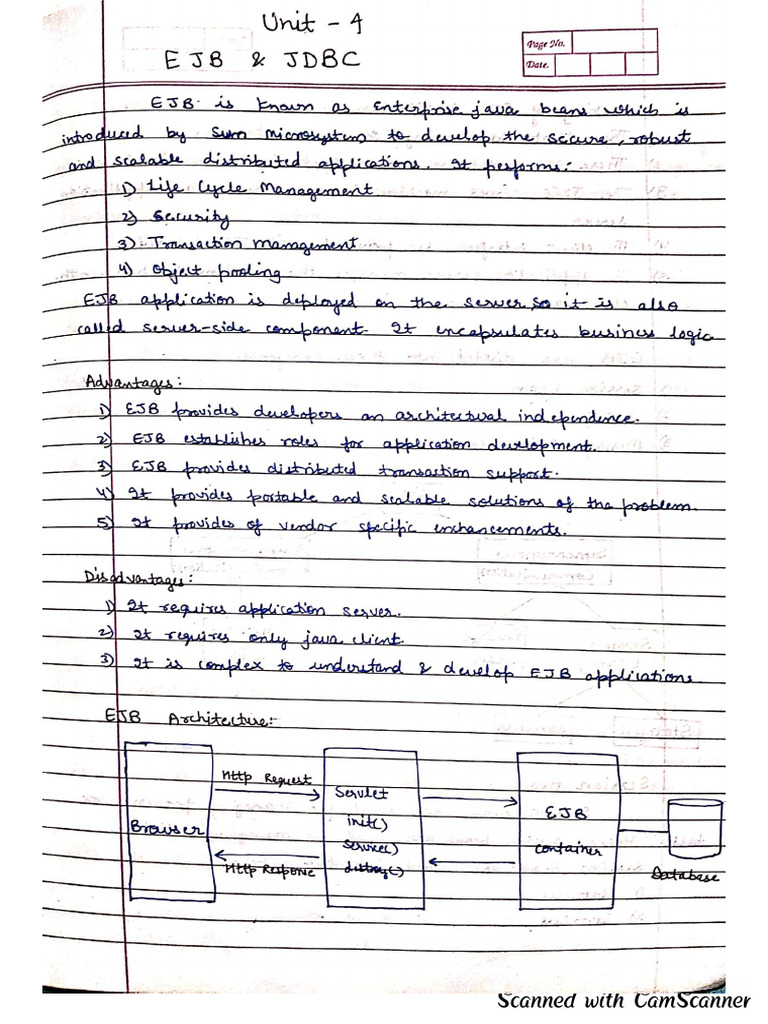 Unit - 4
EJB & JDBC
Page No.
Date.
EJB is known as enterprise java beans which is
introduced by Sun microsystem to develop the secure, robust
and scalable distributed applications. It performs:
1) Life Cycle Management
2) Security
3) Transaction management
4) Object pooling.
EJB application is deployed on the server, so it is also
called server-side component. It encapsulates business logic
Advantages:
1) EJB provides developers an architectual independence.
2) EJB establishes roles for application development.
3) EJB provides distributed transaction support.
4) It provides portable and scalable solutions of the problem.
5) It provides of vendor specific enchancements.
Disadvantages:
1) It requires application server.
2) It requires only java client.
3) It is complex to understand & develop EJB applications
EJB Architecture:-
Browser
Http Request
Http Response
Servlet
init()
service()
destroy()
EJB
container
Database
Scanned with CamScanner